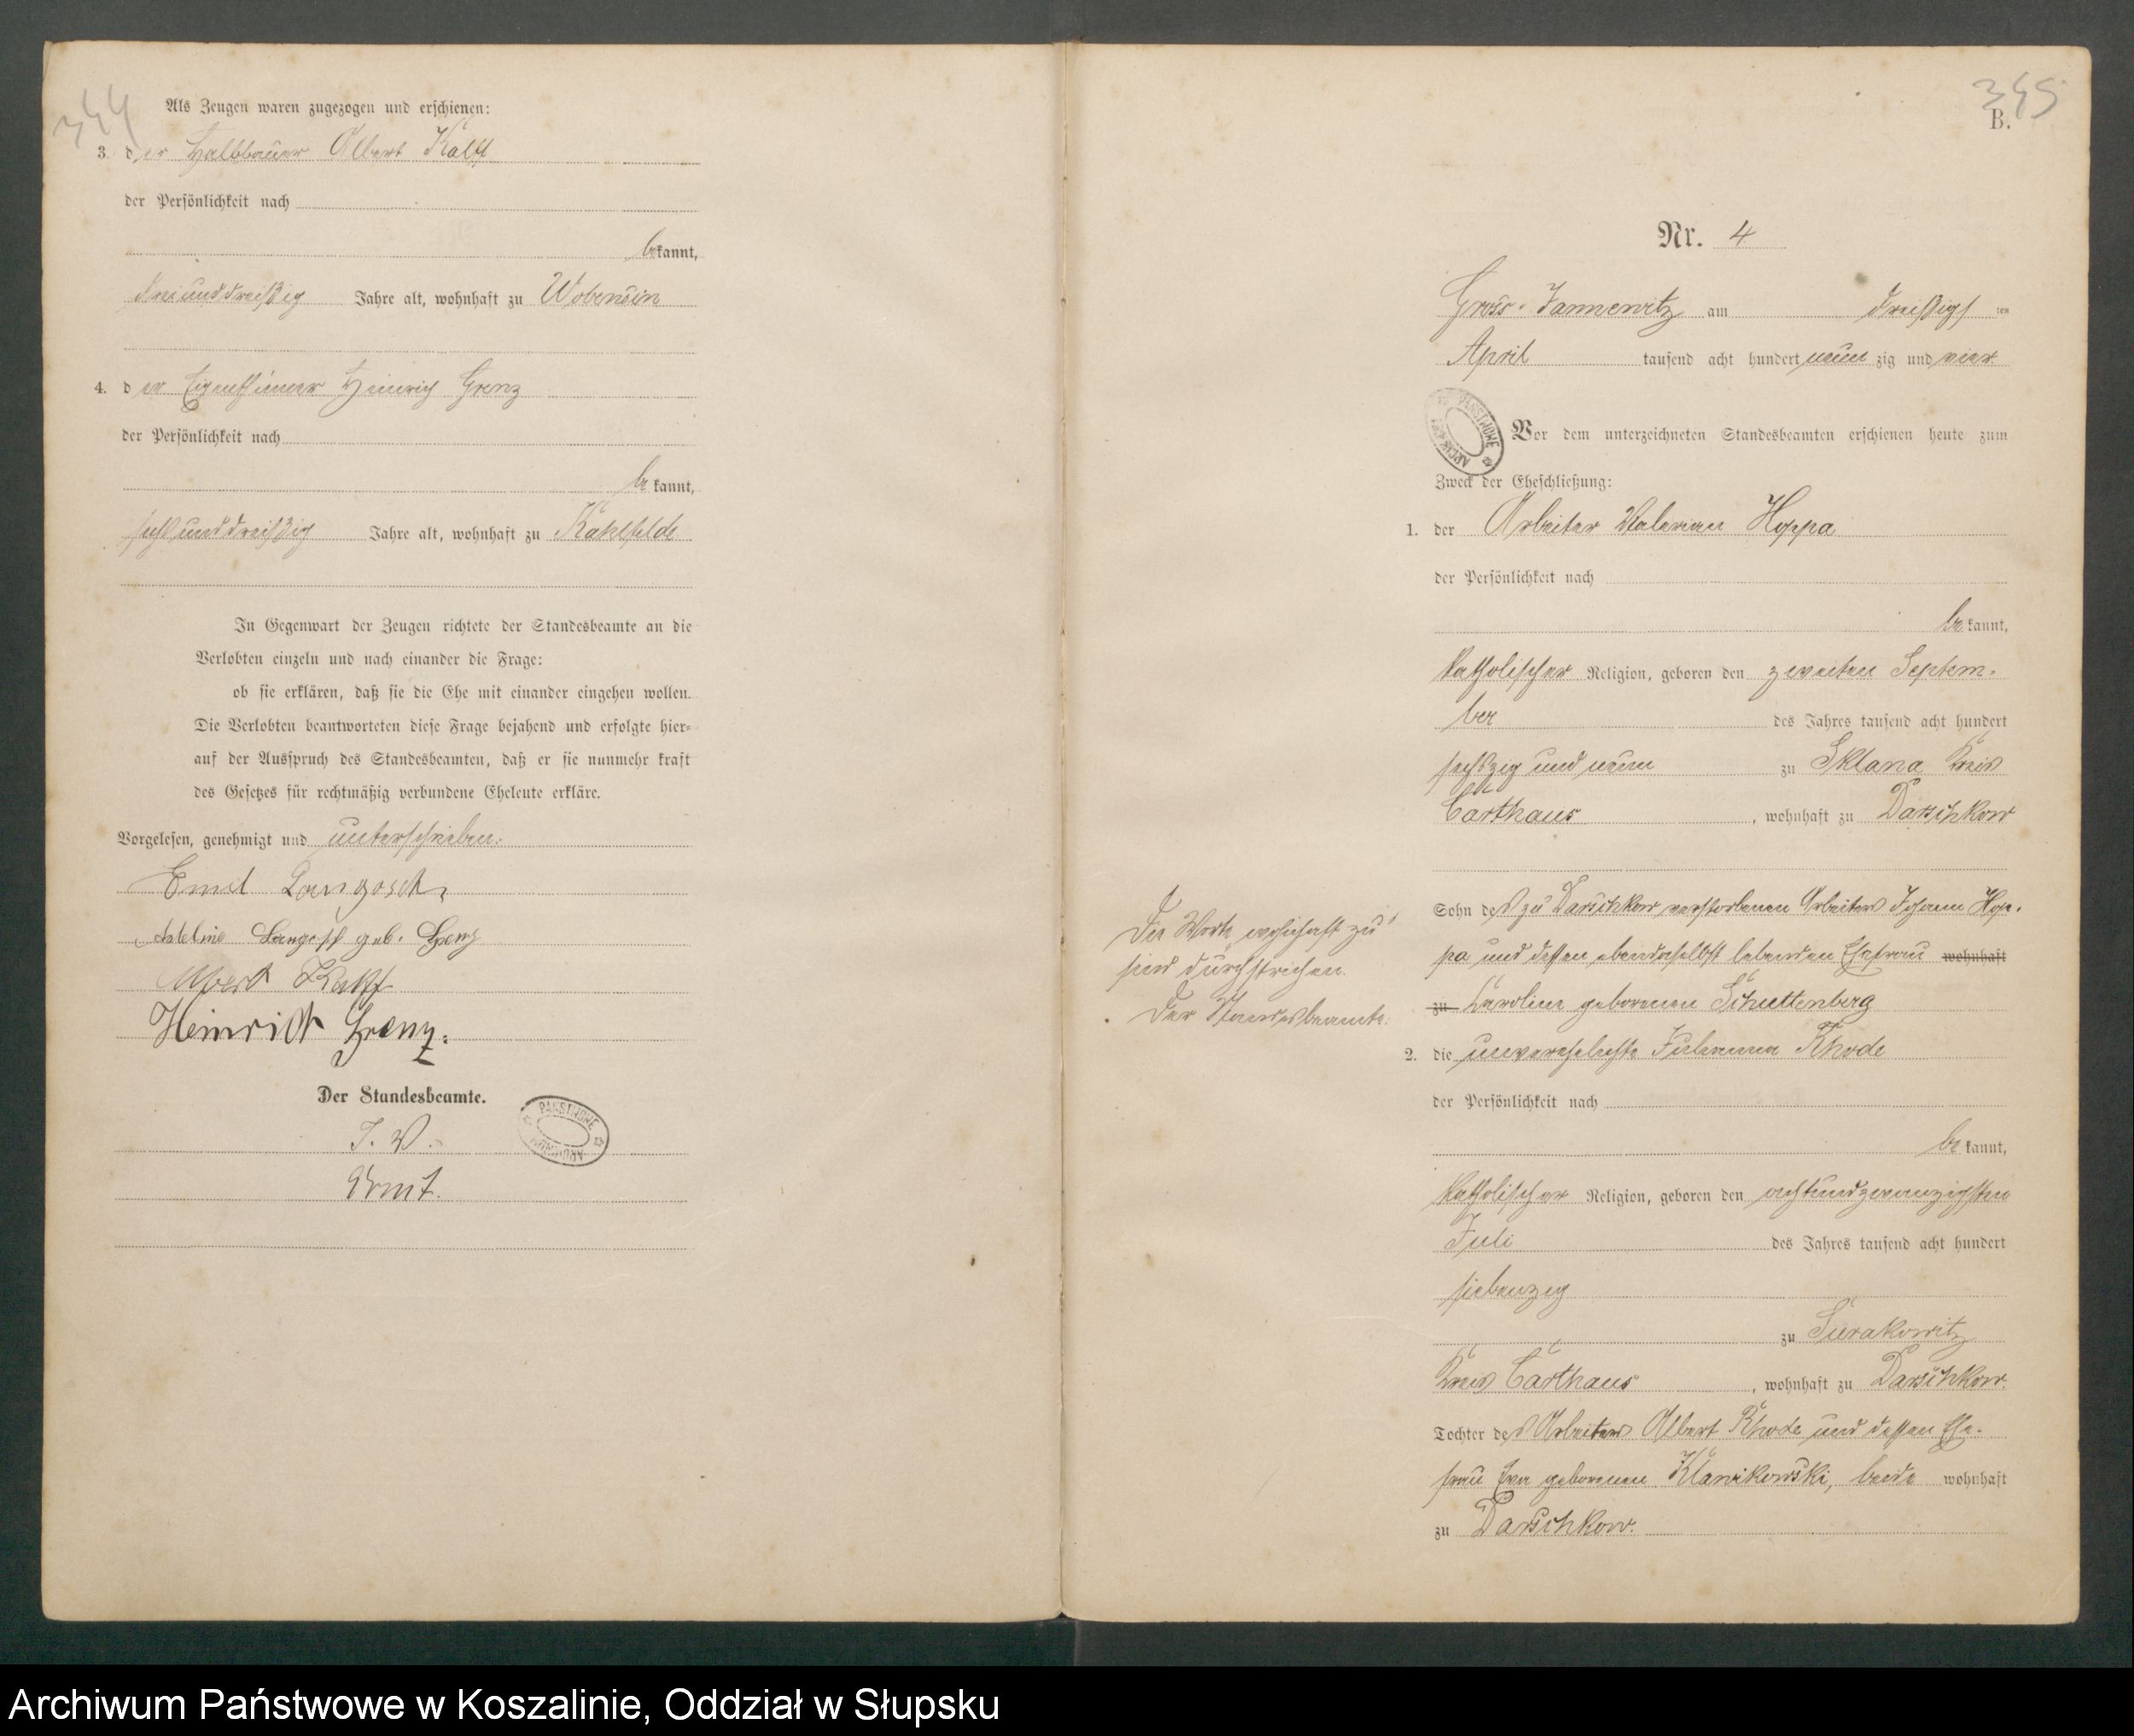 344
Als Zeugen waren zugezogen und erschienen:
3. der Halbbauer Albert
der Persönlichkeit nach
bekannt,
dreiunddreißig Jahre alt, wohnhaft zu Wobensin
4. der Eigenthümer Heinrich Grenz
der Persönlichkeit nach
bekannt,
sechsunddreißig Jahre alt, wohnhaft zu Kahlfelde
In Gegenwart der Zeugen richtete der Standesbeamte an die
Verlobten einzeln und nach einander die Frage:
ob sie erklären, daß sie die Ehe mit einander eingehen wollen.
Die Verlobten beantworteten diese Frage bejahend und erfolgte hier-
auf der Ausspruch des Standesbeamten, daß er sie nunmehr kraft
des Gesetzes für rechtmäßig verbundene Eheleute erkläre.
Vorgelesen, genehmigt und unterschrieben:
Emil Langosch
geb. Grenz
Albert
Heinrich Grenz.
Der Standesbeamte.
PAŃSTWOWE ARCHIWUM
J. V.
345
B.
Nr. 4
Gross-Jannewitz am dreißigsten
April tausend acht hundert neunzig und vier.
PAŃSTWOWE ARCHIWUM
Vor dem unterzeichneten Standesbeamten erschienen heute zum
Zweck der Eheschließung:
1. der Arbeiter Valerian Hoppa
der Persönlichkeit nach
bekannt,
katholischer Religion, geboren den zweiten Septem-
ber des Jahres tausend acht hundert
sechszig und neun zu Sklana Kreis
Carthaus, wohnhaft zu Darschkow
Sohn des zu Darschkow verstorbenen Arbeiters Johann Hop-
pa und dessen ebendaselbst lebenden Ehefrau wohnhaft
zu Karoline geborenen Schuttenberg
Die Worte „wohnhaft zu“
sind durchstrichen.
Der Standesbeamte.
2. die unverehelichte Julianna Rhode
der Persönlichkeit nach
bekannt,
katholischer Religion, geboren den achtundzwanzigsten
Juli des Jahres tausend acht hundert
siebenzig
zu Surakowitz
Kreis Carthaus, wohnhaft zu Darschkow.
Tochter des Arbeiters Albert Rhode und dessen Ehe-
frau Eva geborenen Klawikowski, beide wohnhaft
zu Darschkow.
Archiwum Państwowe w Koszalinie, Oddział w Słupsku